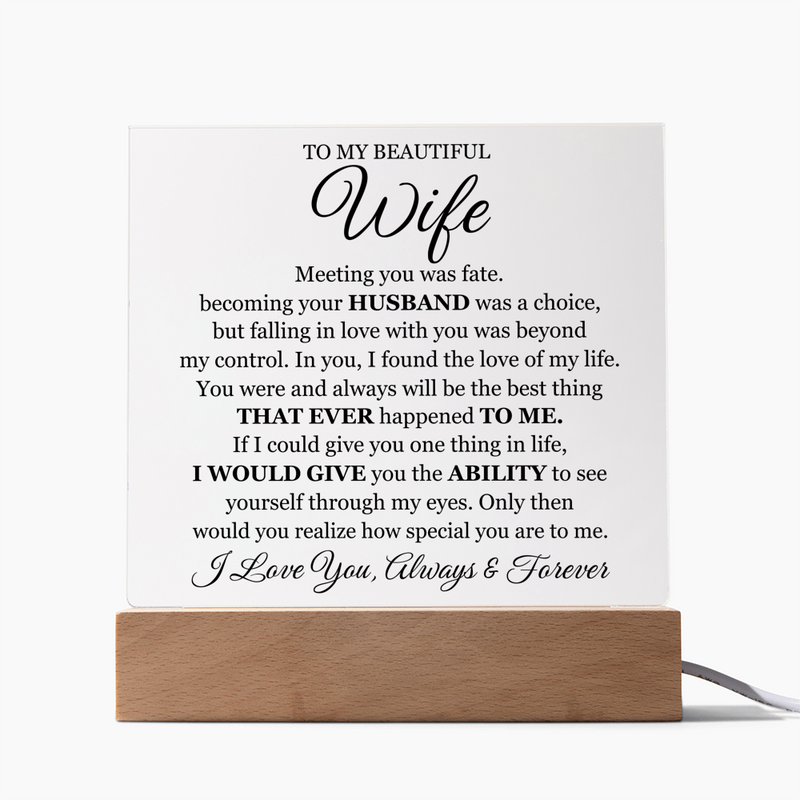 TO MY BEAUTIFUL
Wife
Meeting you was fate.
becoming your HUSBAND was a choice,
but falling in love with you was beyond
my control. In you, I found the love of my life.
You were and always will be the best thing
THAT EVER happened TO ME.
If I could give you one thing in life,
I WOULD GIVE you the ABILITY to see
yourself through my eyes. Only then
would you realize how special you are to me.
I Love You, Always & Forever